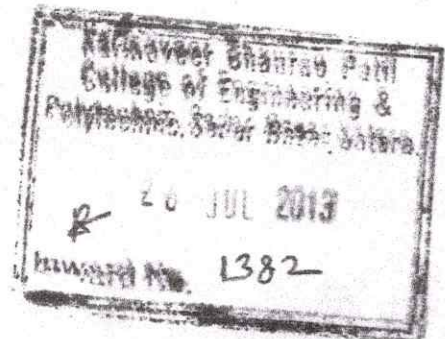 Karmaveer Bhaurao Patil
College of Engineering &
Polytechnic, Sadar Bazar, Satara.
26 JUL 2013
Inward No. 1382